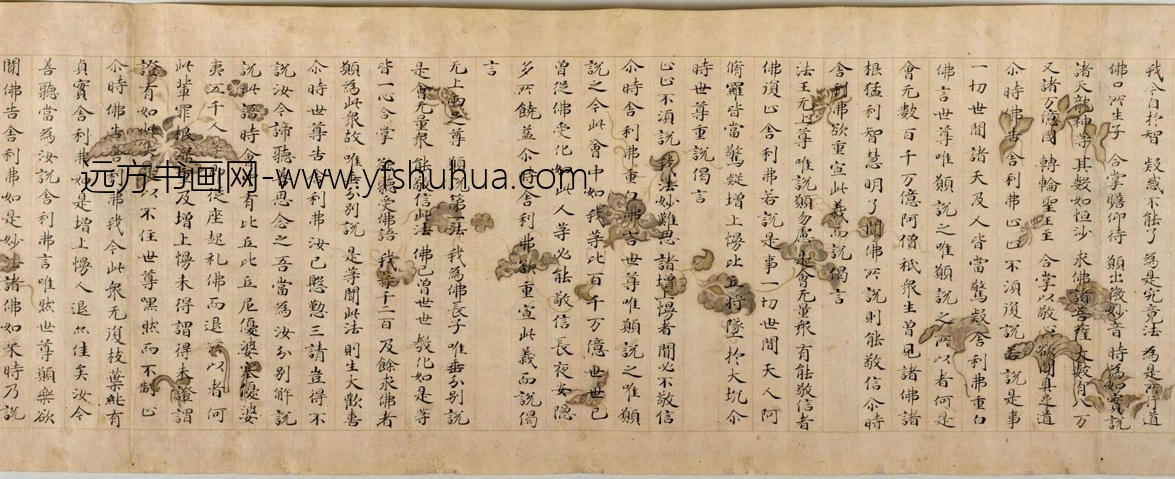 我今自於智 疑惑不能了 為是究竟法 為是所行道
佛口所生子 合掌瞻仰待 願出微妙音 時為如實說
諸天龍神等 其數如恒沙 求佛諸菩薩 大數有八万
又諸万億國 轉輪聖王至 合掌以敬心 欲聞具足道
尒時佛告舍利弗止止不須復說若說是事
一切世間諸天及人皆當驚疑舍利弗重白
佛言世尊唯願說之唯願說之所以者何是
會无數百千万億阿僧祇衆生曾見諸佛諸
根猛利智慧明了聞佛所說則能敬信尒時
舍利弗欲重宣此義而說偈言
法王无上尊 唯說願勿慮 是會无量衆 有能敬信者
佛復止舍利弗若說是事一切世間天人阿
脩羅皆當驚疑增上慢比丘將墜於大坑尒
時世尊重說偈言
止止不須說 我法妙難思 諸增上慢者 聞必不敬信
尒時舍利弗重白佛言世尊唯願說之唯願
說之今此會中如我等比百千万億世世已
曾從佛受化如此人等必能敬信長夜安隱
多所饒益尒時舍利弗欲重宣此義而說偈
言
无上兩足尊 願說第一法 我為佛長子 唯垂分別說
是會无量衆 能敬信此法 佛已曾世世 教化如是等
皆一心合掌 欲聽受佛語 我等千二百 及餘求佛者
願為此衆故 唯垂分別說 是等聞此法 則生大歡喜
尒時世尊告舍利弗汝已慇懃三請豈得不
說汝今諦聽善思念之吾當為汝分別解說
說此語時會中有比丘比丘尼優婆塞優婆
夷五千人等即從座起礼佛而退所以者何
此輩罪根深重及增上慢未得謂得未證謂
證有如此失是以不住世尊嘿然而不制止
尒時佛告舍利弗我今此衆无復枝葉純有
貞實舍利弗如是增上慢人退亦佳矣汝今
善聽當為汝說舍利弗言唯然世尊願樂欲
聞佛告舍利弗如是妙法諸佛如來時乃說
远方书画网-www.yfshuhua.com